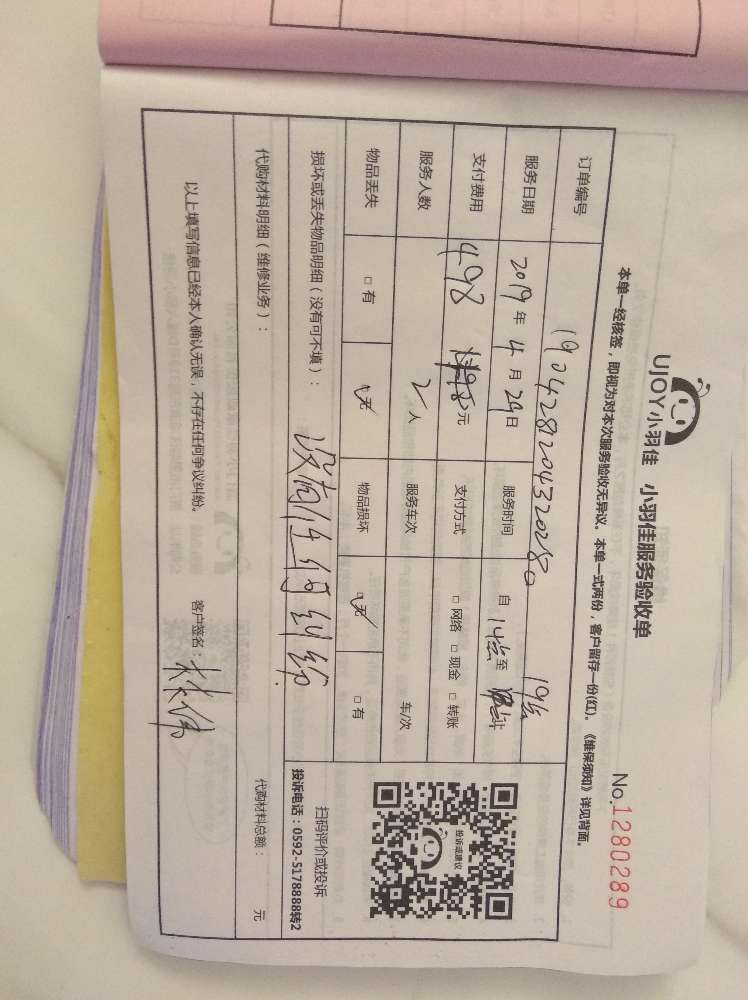 UJOY小羽佳 小羽佳服务验收单
No.1280289
本单一经核签，即视为对本次服务验收无异议。本单一式两份，客户留存一份(红)。《维保须知》详见背面。
订单编号 1904281204320280
服务日期 2019年4月29日 服务时间 自 14: 至 19:
支付费用 498 元 支付方式 □网络 □现金 □转账
服务人数 2人 服务车次 车/次
物品丢失 □有 □无 物品损坏 □无 □有
损坏或丢失物品明细（没有可不填）： 没有任何纠纷.
扫码评价或投诉
投诉电话：0592-5178888转2
投诉或建议
代购材料明细（维修业务）： 代购材料总额： 元
以上填写信息已经本人确认无误，不存在任何争议纠纷。 客户签名：